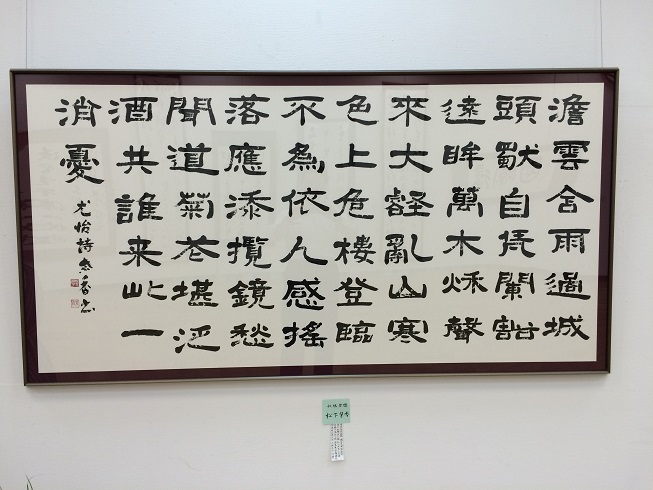 澹雲含雨過城
頭獨自凭闌豁
遠眸萬木秋聲
來大壑亂山寒
色上危樓登臨
不為依人感搖
落應添攬鏡愁
聞道菊花堪泛
酒共誰来此一
消憂
尤怡詩